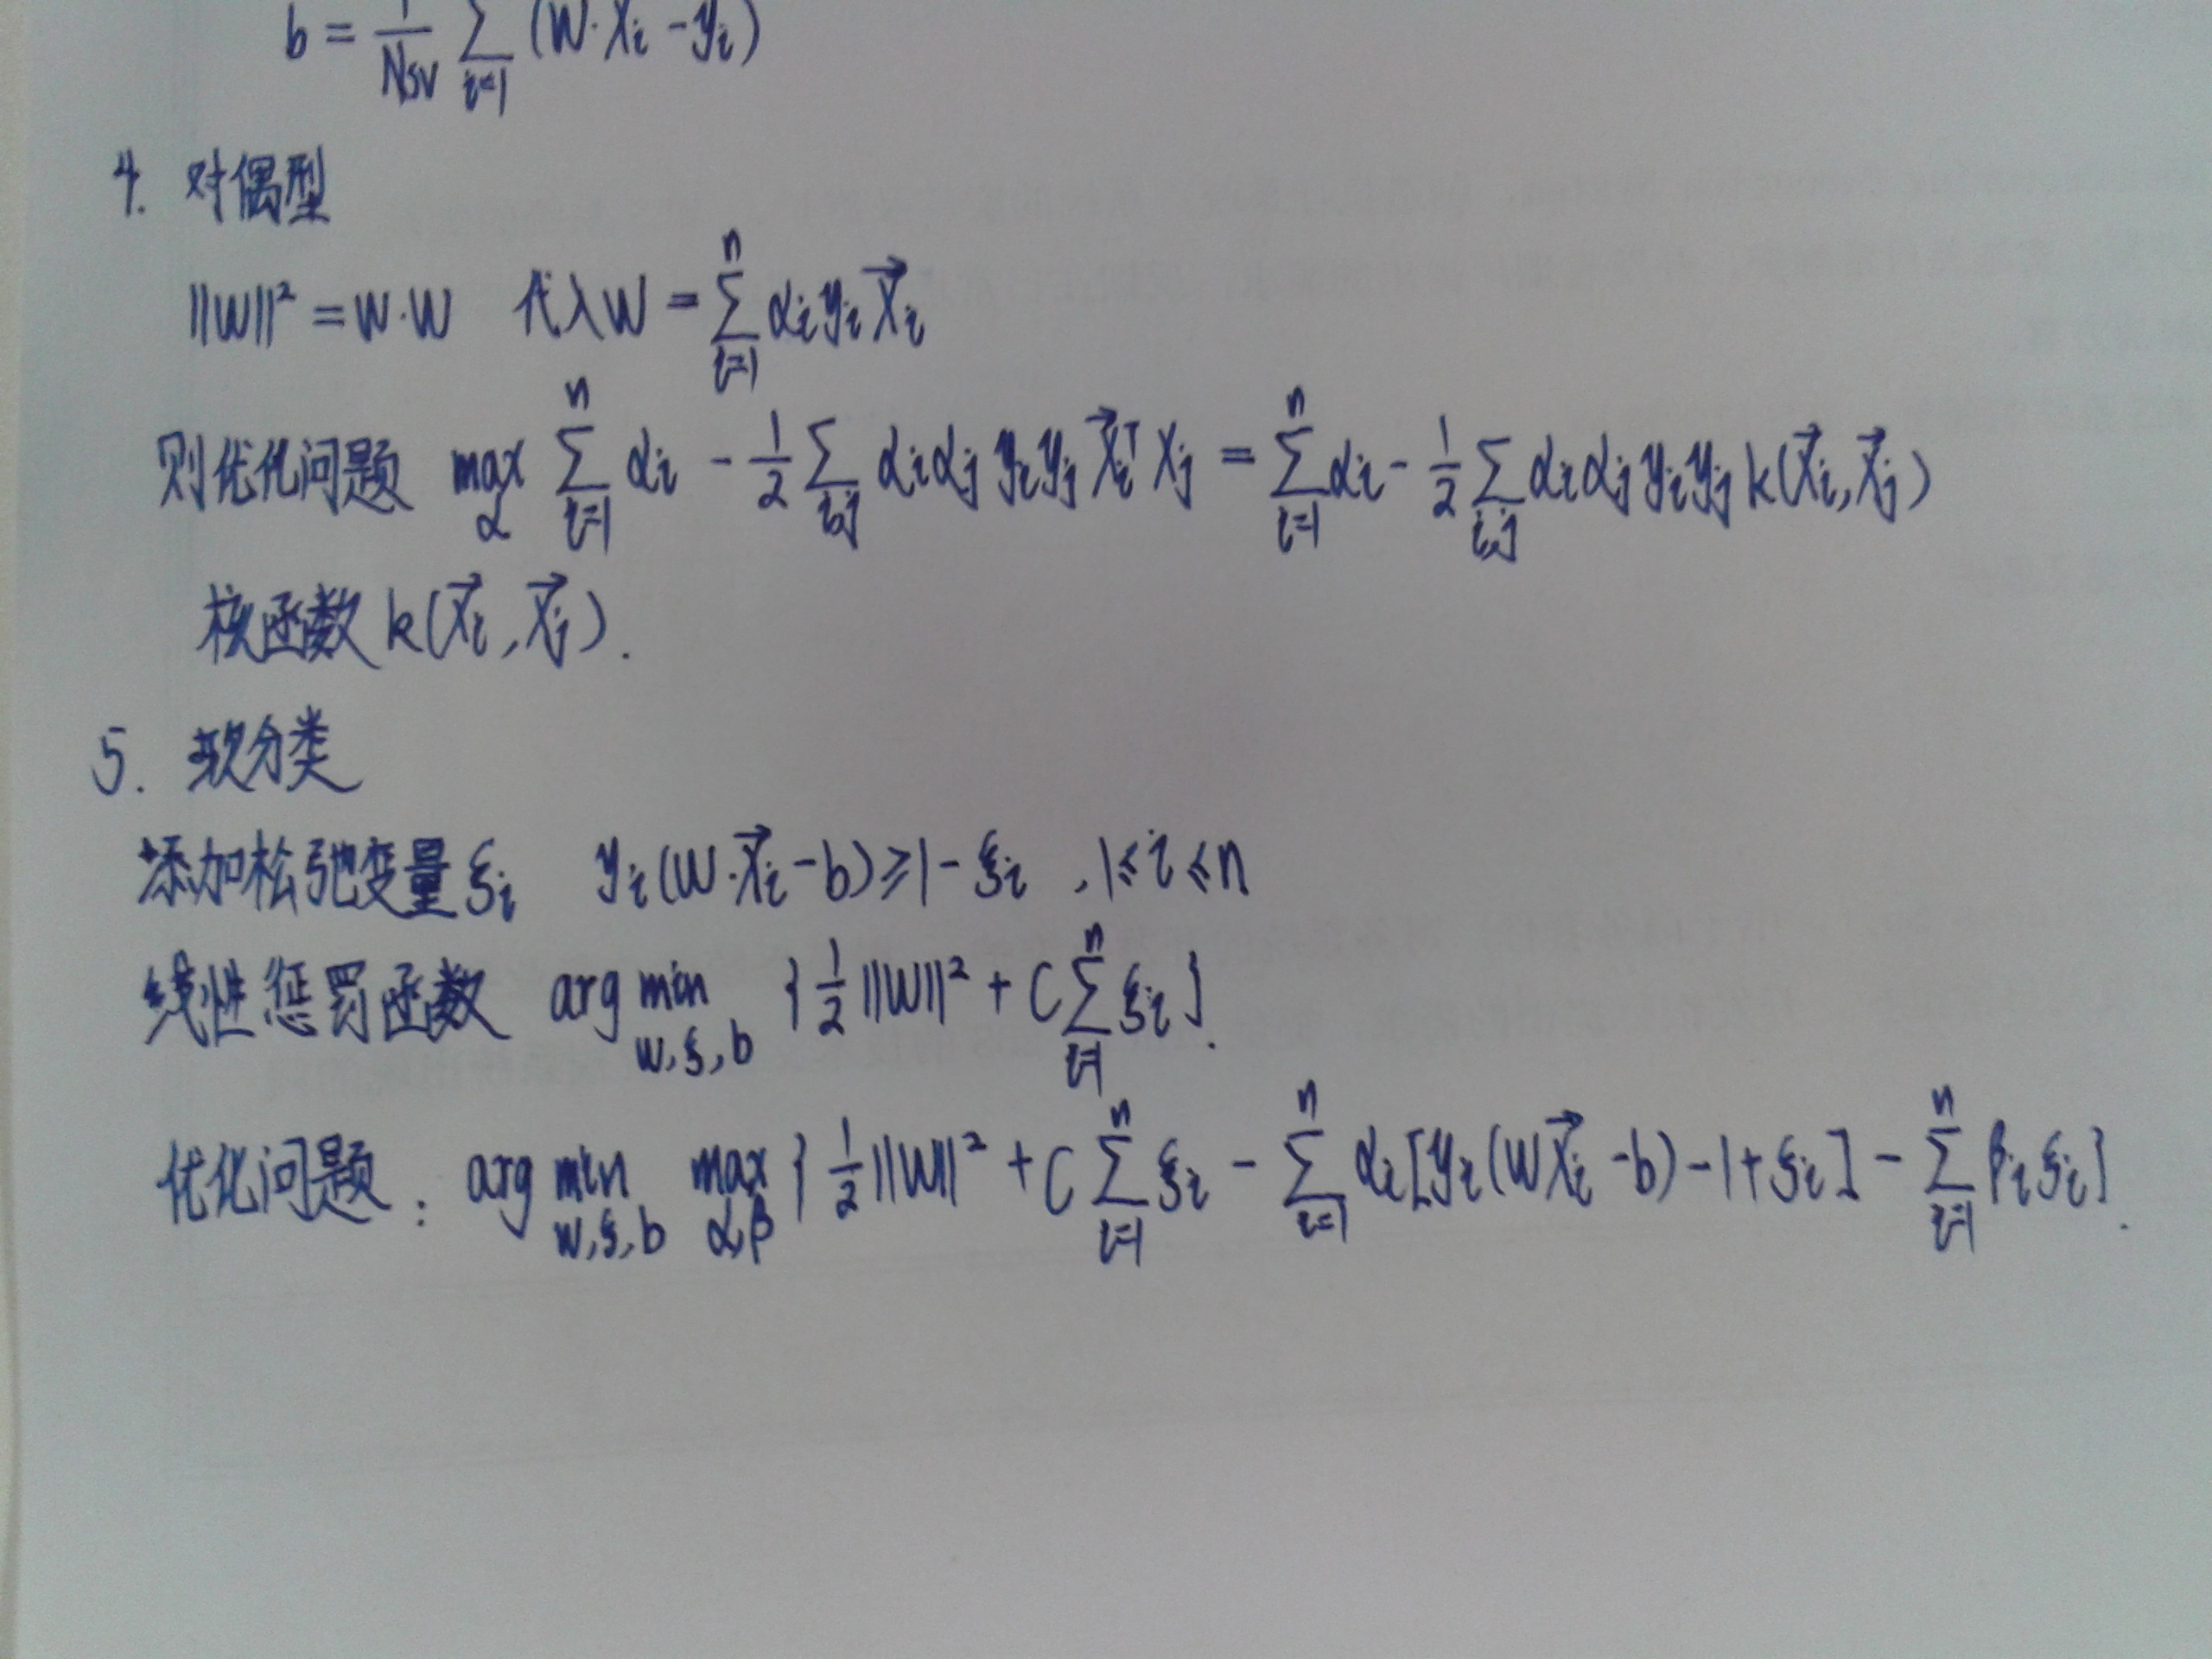 b = 1/N_SV Σ_{i=1} (W·X_i - y_i)
4. 对偶型
||W||² = W·W 代入W = Σ_{i=1}^{n} α_i y_i \vec{X}_i
则优化问题 max_α Σ_{i=1}^{n} α_i - 1/2 Σ_{i,j} α_i α_j y_i y_j \vec{X}_i^T X_j = Σ_{i=1}^{n} α_i - 1/2 Σ_{i,j} α_i α_j y_i y_j k(\vec{X}_i, \vec{X}_j)
核函数 k(\vec{X}_i, \vec{X}_j).
5. 软分类
添加松弛变量ξ_i y_i(W·\vec{X}_i - b) ≥ 1 - ξ_i , 1 ≤ i ≤ n
线性惩罚函数 arg min_{W,ξ,b} {1/2 ||W||² + C Σ_{i=1}^{n} ξ_i}.
优化问题: arg min_{W,ξ,b} max_{α,β} {1/2 ||W||² + C Σ_{i=1}^{n} ξ_i - Σ_{i=1}^{n} α_i[y_i(W\vec{X}_i - b) - 1 + ξ_i] - Σ_{i=1}^{n} β_i ξ_i}.